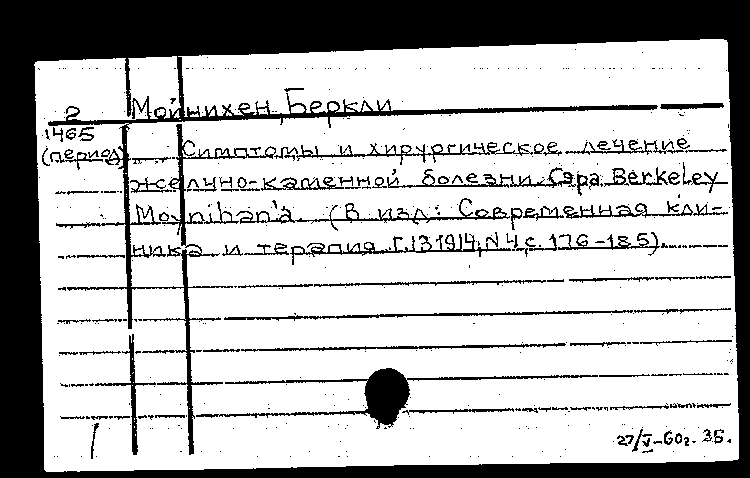 2 Мойнихен, Беркли
1465
(период) Симптомы и хирургическое лечение
желчно-каменной болезни Сэра Berkeley
Moynihan'a. (В изд.: Современная кли-
ника и терапия Г.13 1914, N 4, с. 176-185).
27/V-60г. 35.